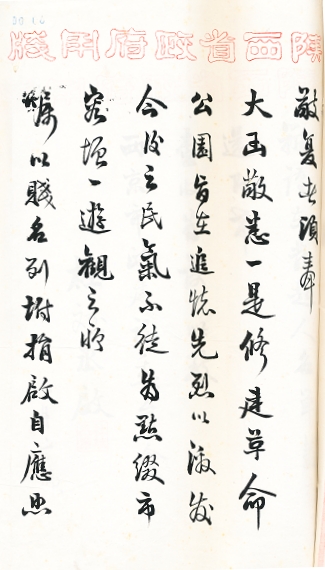 陕西省政府用牋
敬复者頃奉
大函敬悉一是修建革命
公園旨在追悼先烈以激发
今後之民氣不徒為點綴市
容增一遊觀之所
嘱以賤名列坿捐啟自應照